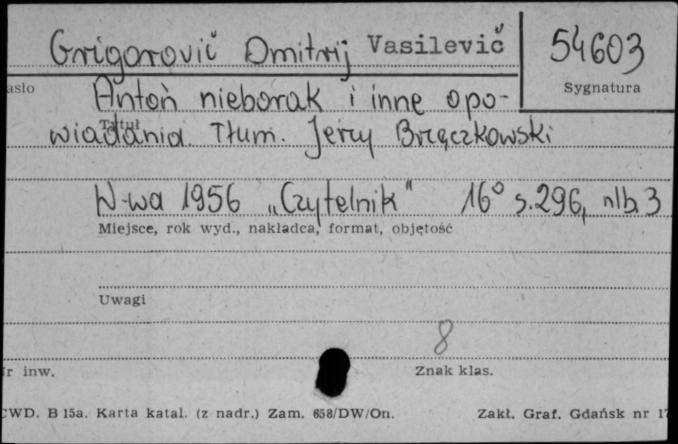 Grigorovič Dmitrij Vasilevič 54603
Sygnatura
Antoń nieborak i inne opo-
wiadania. Tłum. Jerzy Brzęczkowski
Tytuł
W-wa 1956 „Czytelnik" 16° s. 296, nlb. 3
Miejsce, rok wyd., nakładca, format, objętość
Uwagi
8
inw. Znak klas.
CWD. B 15a. Karta katal. (z nadr.) Zam. 658/DW/On. Zakł. Graf. Gdańsk nr